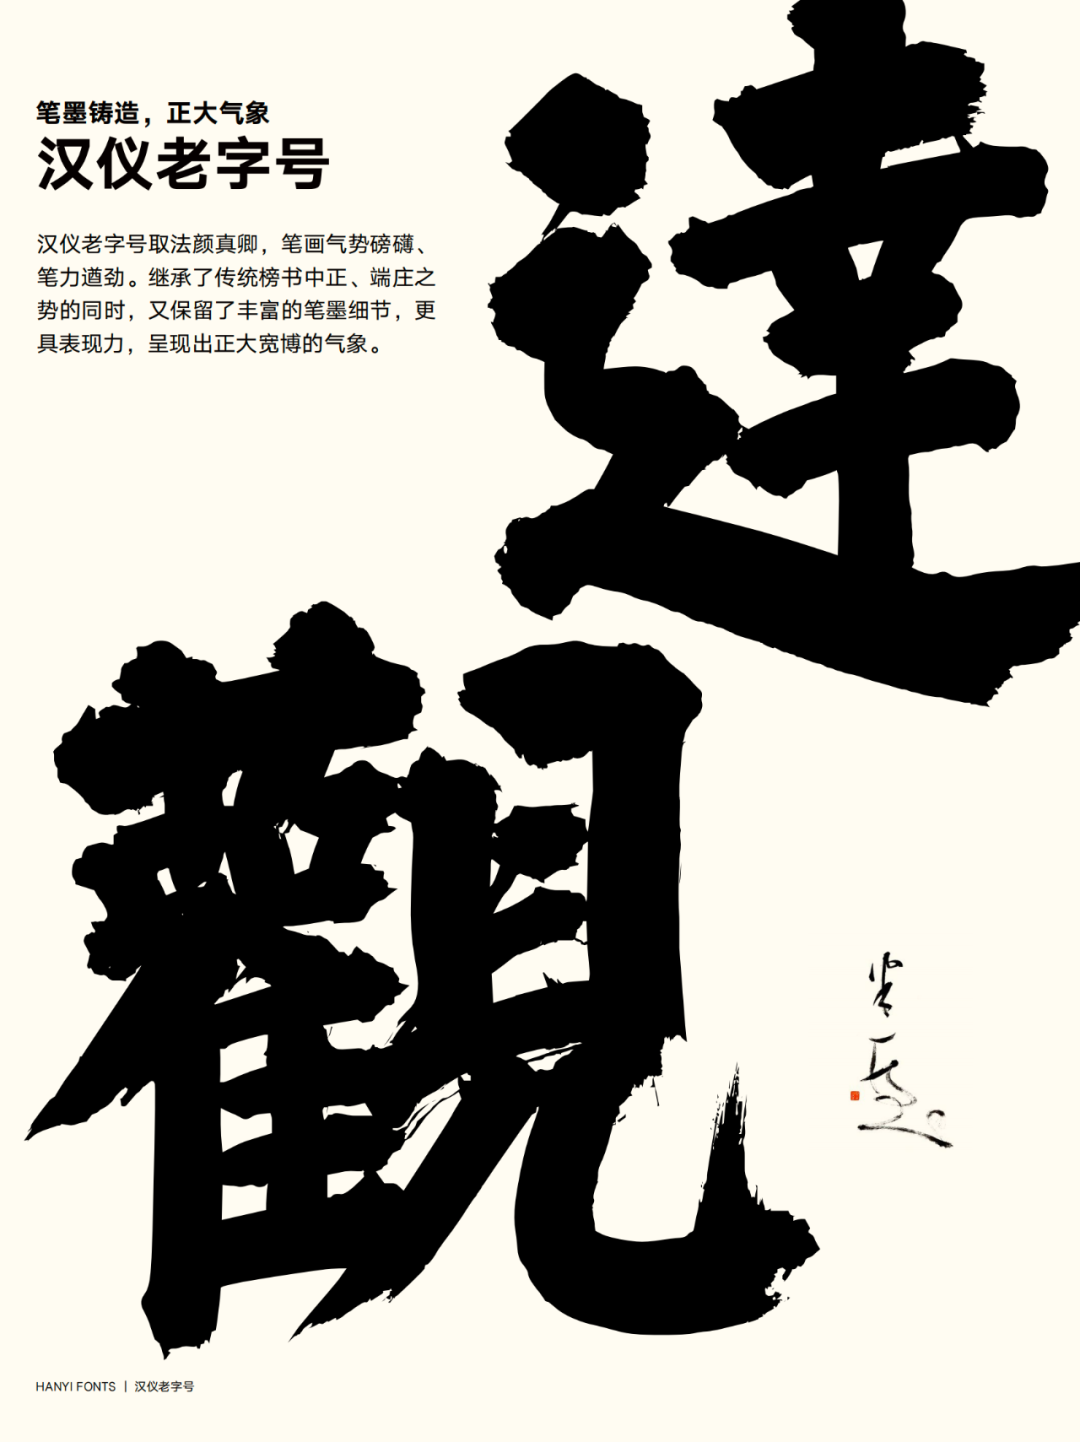 笔墨铸造，正大气象
汉仪老字号
汉仪老字号取法颜真卿，笔画气势磅礴、
笔力遒劲。继承了传统榜书中正、端庄之
势的同时，又保留了丰富的笔墨细节，更
具表现力，呈现出正大宽博的气象。
達
觀
HANYI FONTS | 汉仪老字号